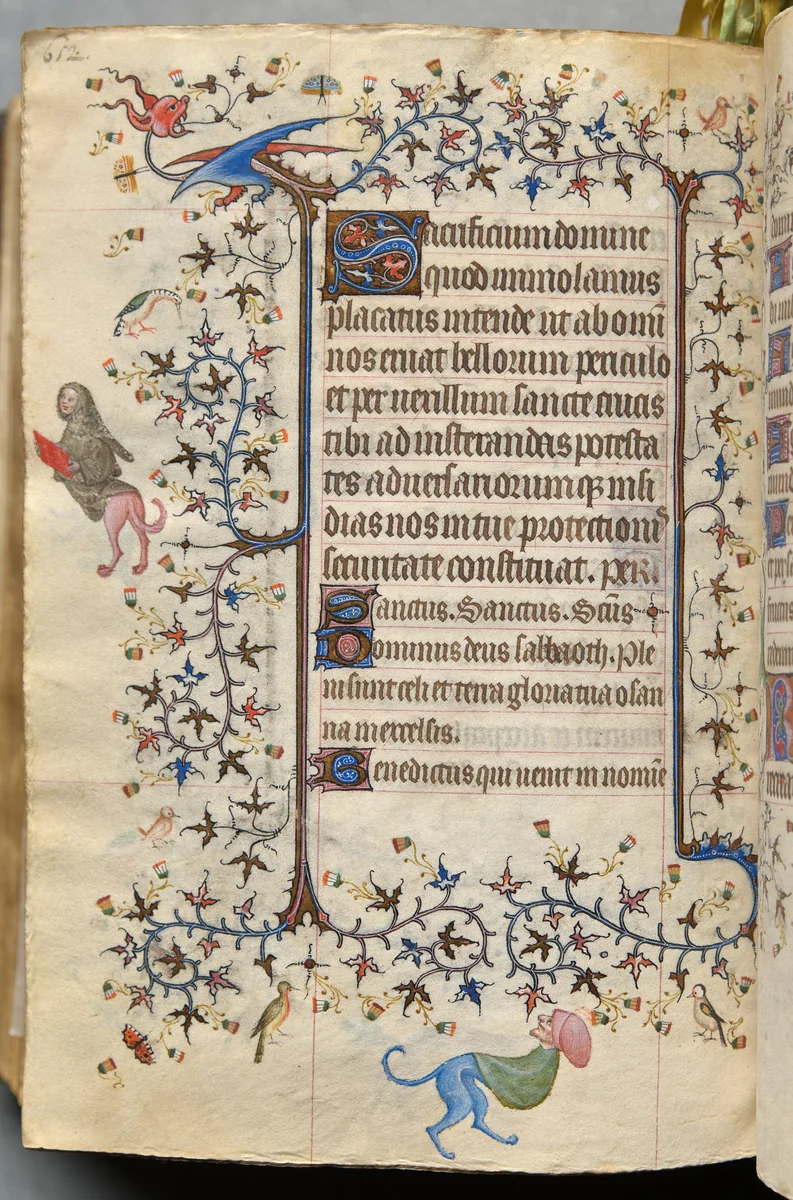 612
Sacrificium domine
quod immolamus
placatus intende ut ab om̄i
nos eruat bellorum periculo
et per uexillum sancte crucis
tibi ad insterandas potesta
tes aduersariorumq; insi
dias nos in tue protectionis
securitate constituat. per.
Sanctus. Sanctus. Sc̄us
Dominus deus sabbaoth. Ple
ni sunt celi et terra gloria tua osan
na in excelsis.
Benedictus qui uenit in nomīe